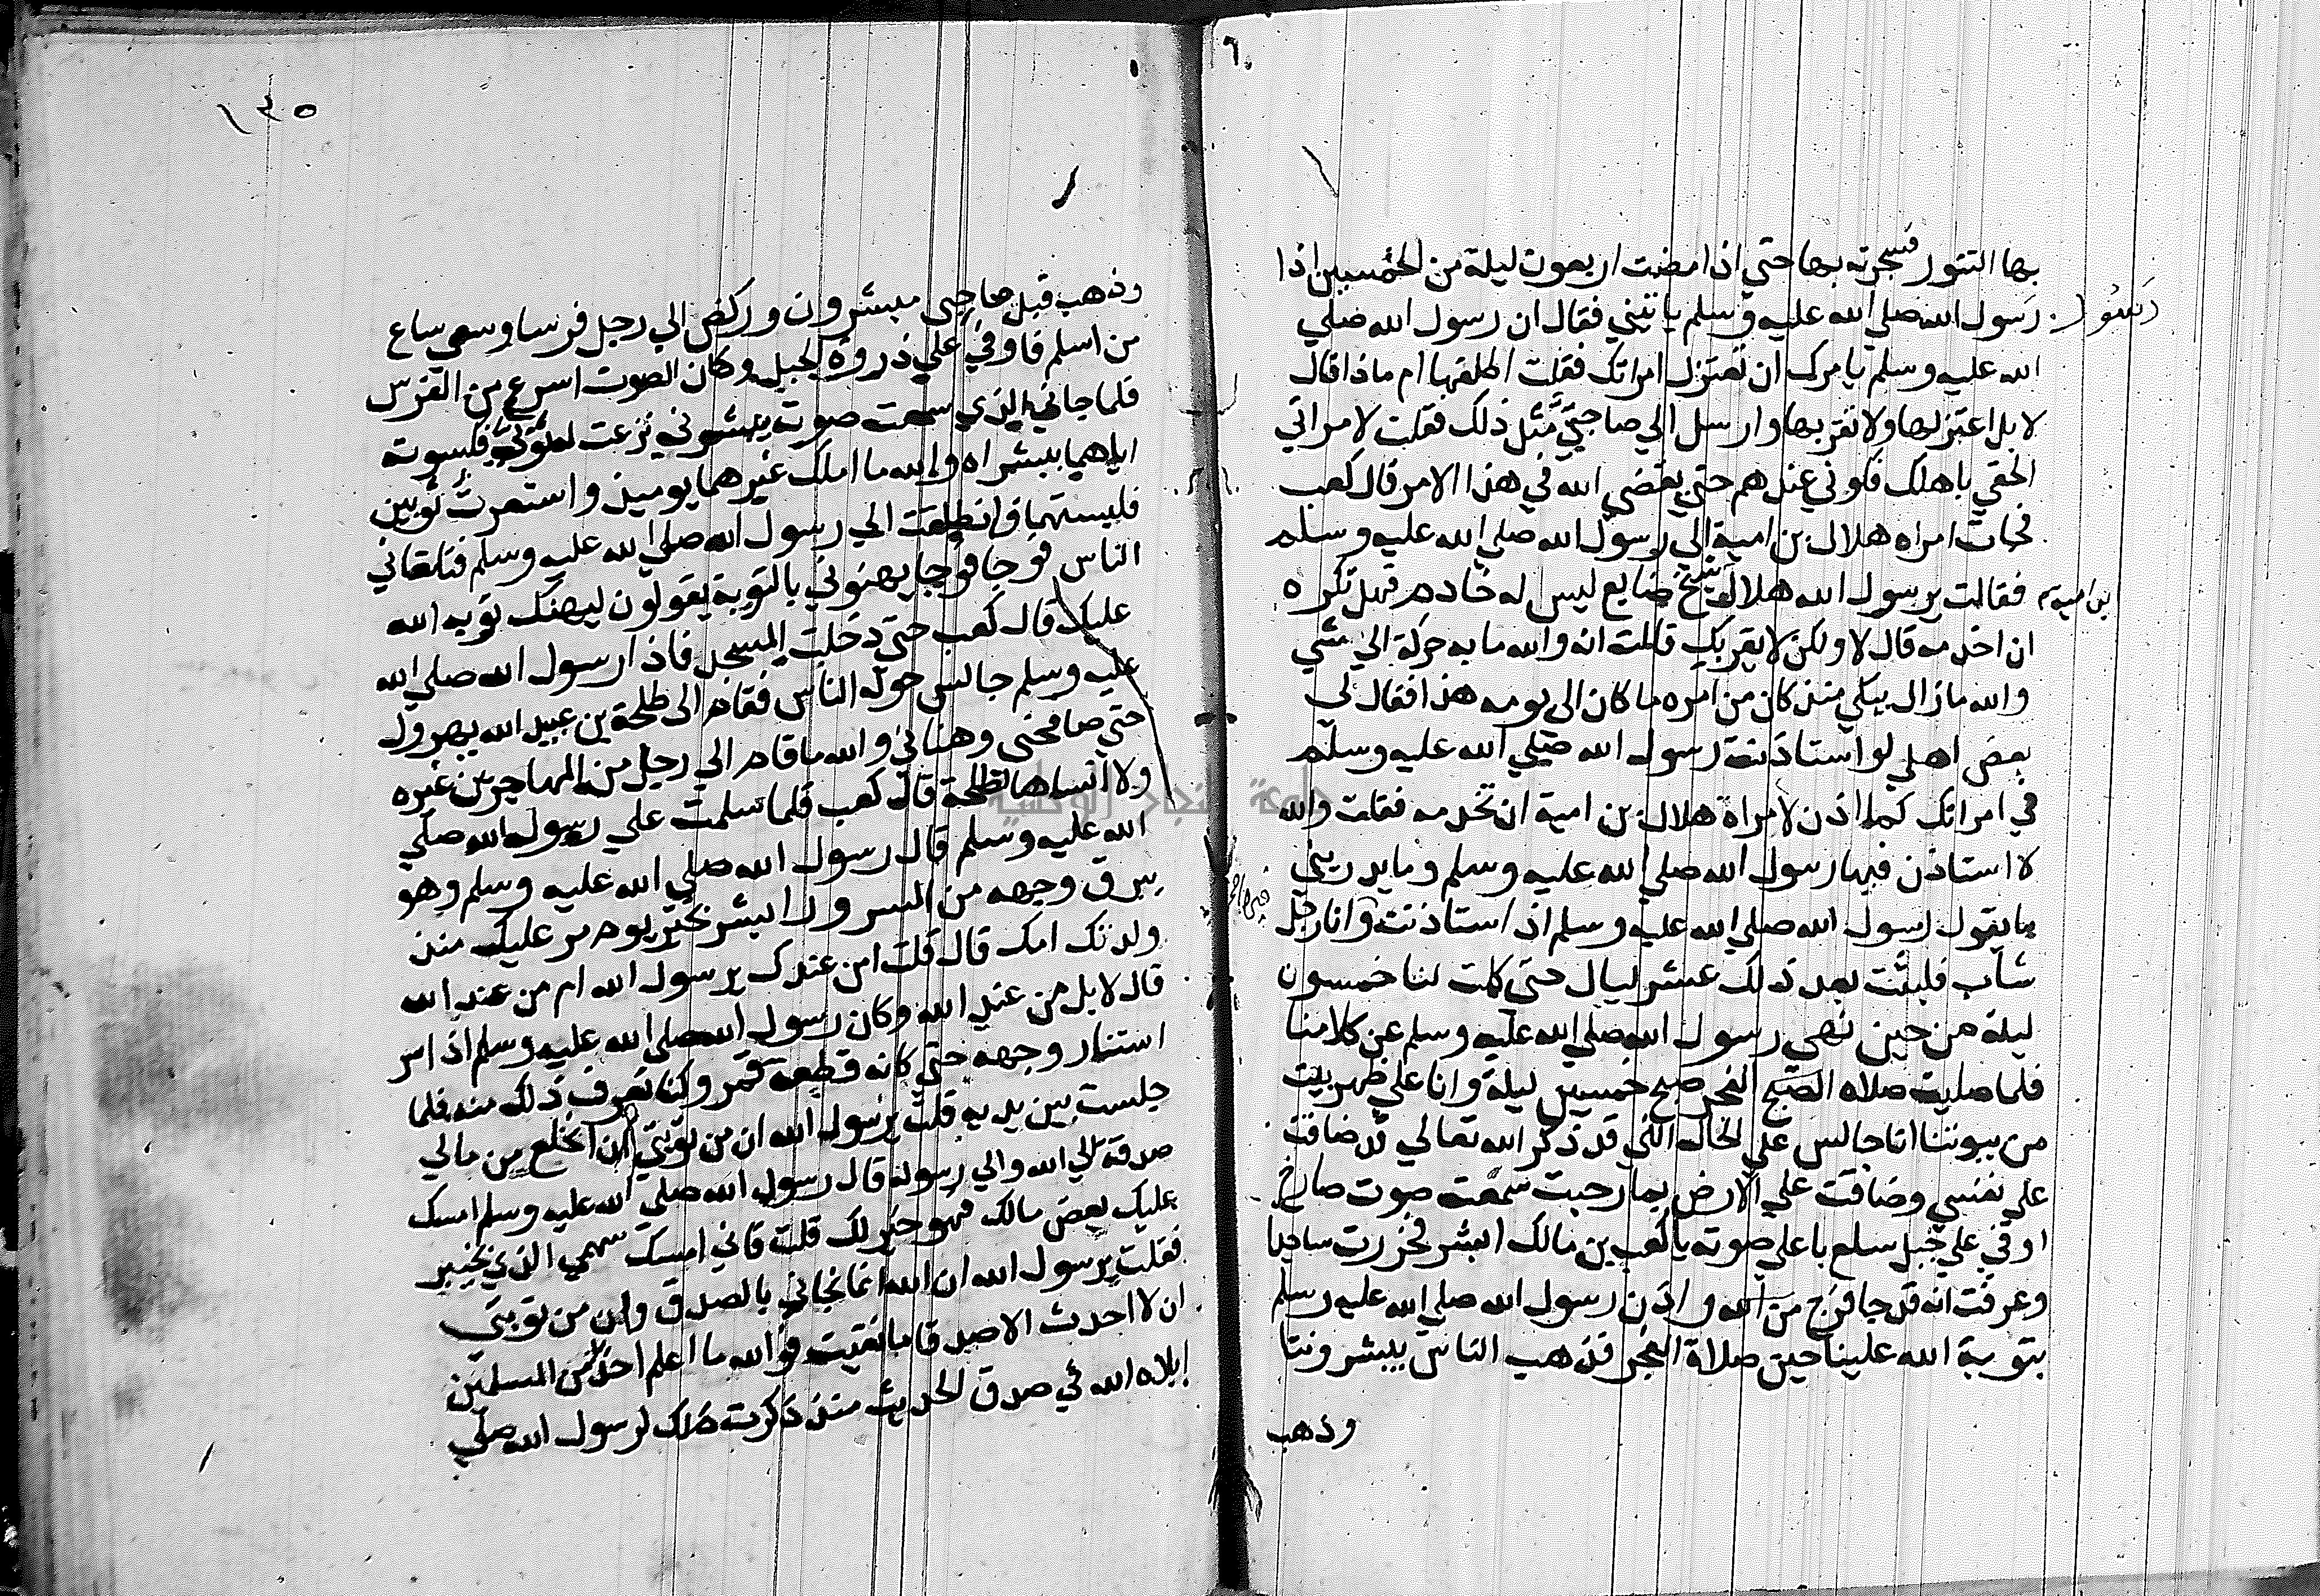 بها التنور فسجرته بها حتي اذا مضت اربعون ليلة من الخمسين اذا
رسول
رسول الله صلي الله عليه وسلم ياتيني فقال ان رسول الله صلي
الله عليه وسلم يامرك ان تعتزل امراتك فقلت اطلقها ام ماذا قال
لا بل اعتزلها ولا تقربها وارسل الي صاحبي مثل ذلك فقلت لامراتي
الحقي باهلك فكوني عندهم حتي يقضي الله في هذا الامر قال كعب
فجات امراه هلال بن امية الي رسول الله صلي الله عليه وسلم
بن امية
فقالت يرسول الله هلال شيخ ضايع ليس له خادم فهل تكره
ان اخدمه قال لا ولكن لا يقربك قالت انه والله ما به حركة الي شي
والله ما زال يبكي منذ كان من امره ما كان الى يومه هذا فقال لي
بعض اهلي لو استاذنت رسول الله صلي الله عليه وسلم
في امراتك كما اذن لامراة هلال بن امية ان تخدمه فقلت والله
لا استاذن فيها رسول الله صلي الله عليه وسلم وما يدريني
ما يقول رسول الله صلي الله عليه وسلم اذا استاذنت وانا رجل
شاب فلبثت بعد ذلك عشر ليال حتي كملت لنا خمسون
ليلة من حين نهي رسول الله صلي الله عليه وسلم عن كلامنا
فلما صليت صلاه الصبح الفجر صبح خمسين ليلة وانا علي ظهر بيت
من بيوتنا انا جالس علي الحال التي قد ذكر الله تعالي قد ضاقت
علي نفسي وضاقت علي الارض بما رحبت سمعت صوت صارخ
اوفي علي جبل سلع باعلي صوته يا كعب بن مالك ابشر فخررت ساجدا
وعرفت انه قد جا فرج من الله واذن رسول الله صلي الله عليه وسلم
بتوبة الله علينا حين صلاة الفجر فذهب الناس يبشروننا
وذهب
١٣٥
وذهب قبل صاحبي مبشرون وركض الي رجل فرسا وسعي ساع
من اسلم فاوفي علي ذروة الجبل وكان الصوت اسرع من الفرس
فلما جاني الذي سمعت صوته يبشرني نزعت له ثوبي فكسوته
اياهما ببشراه والله ما املك غيرهما يوميذ واستعرت ثوبين
فلبستهما فانطلقت الي رسول الله صلي الله عليه وسلم فتلقاني
الناس فوجا فوجا يهنوني بالتوبة يقولون ليهنك توبه الله
عليك قال كعب حتي دخلت المسجد فاذا رسول الله صلي الله
عليه وسلم جالس حوله الناس فقام الى طلحة بن عبيد الله يهرول
حتي صافحني وهناني والله ما قام الي رجل من المهاجرين غيره
ولا انساها لطلحة قال كعب فلما سلمت علي رسول الله صلي
الله عليه وسلم قال رسول الله صلي الله عليه وسلم وهو
يبرق وجهه من السرور ابشر بخير يوم مر عليك منذ
ولدتك امك قال قلت امن عندك يرسول الله ام من عند الله
قال لا بل من عند الله وكان رسول الله صلي الله عليه وسلم اذا سر
استنار وجهه حتي كانه قطعة قمر وكنا نعرف ذلك منه فلما
جلست بين يديه قلت يرسول الله ان من توبتي ان انخلع من مالي
صدقة الي الله والي رسوله قال رسول الله صلي الله عليه وسلم امسك
عليك بعض مالك فهو خير لك قلت فاني امسك سهمي الذي بخيبر
فقلت يرسول الله ان الله انما نجاني بالصدق وان من توبتي
ان لا احدث الا صدقا ما بقيت فوالله ما اعلم احدا من المسلمين
ابلاه الله في صدق الحديث منذ ذكرت ذلك لرسول الله صلي